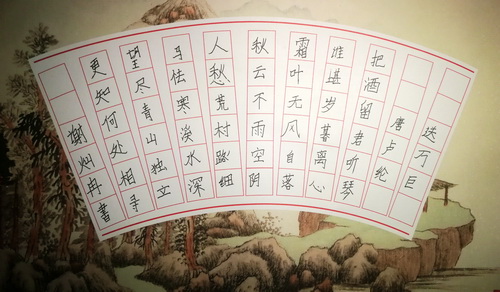 送万巨
唐卢纶
把酒留君听琴
难堪岁暮离心
霜叶无风自落
秋云不雨空阴
人愁荒村路细
马怯寒溪水深
望尽青山独立
更知何处相寻
谢灿冉書